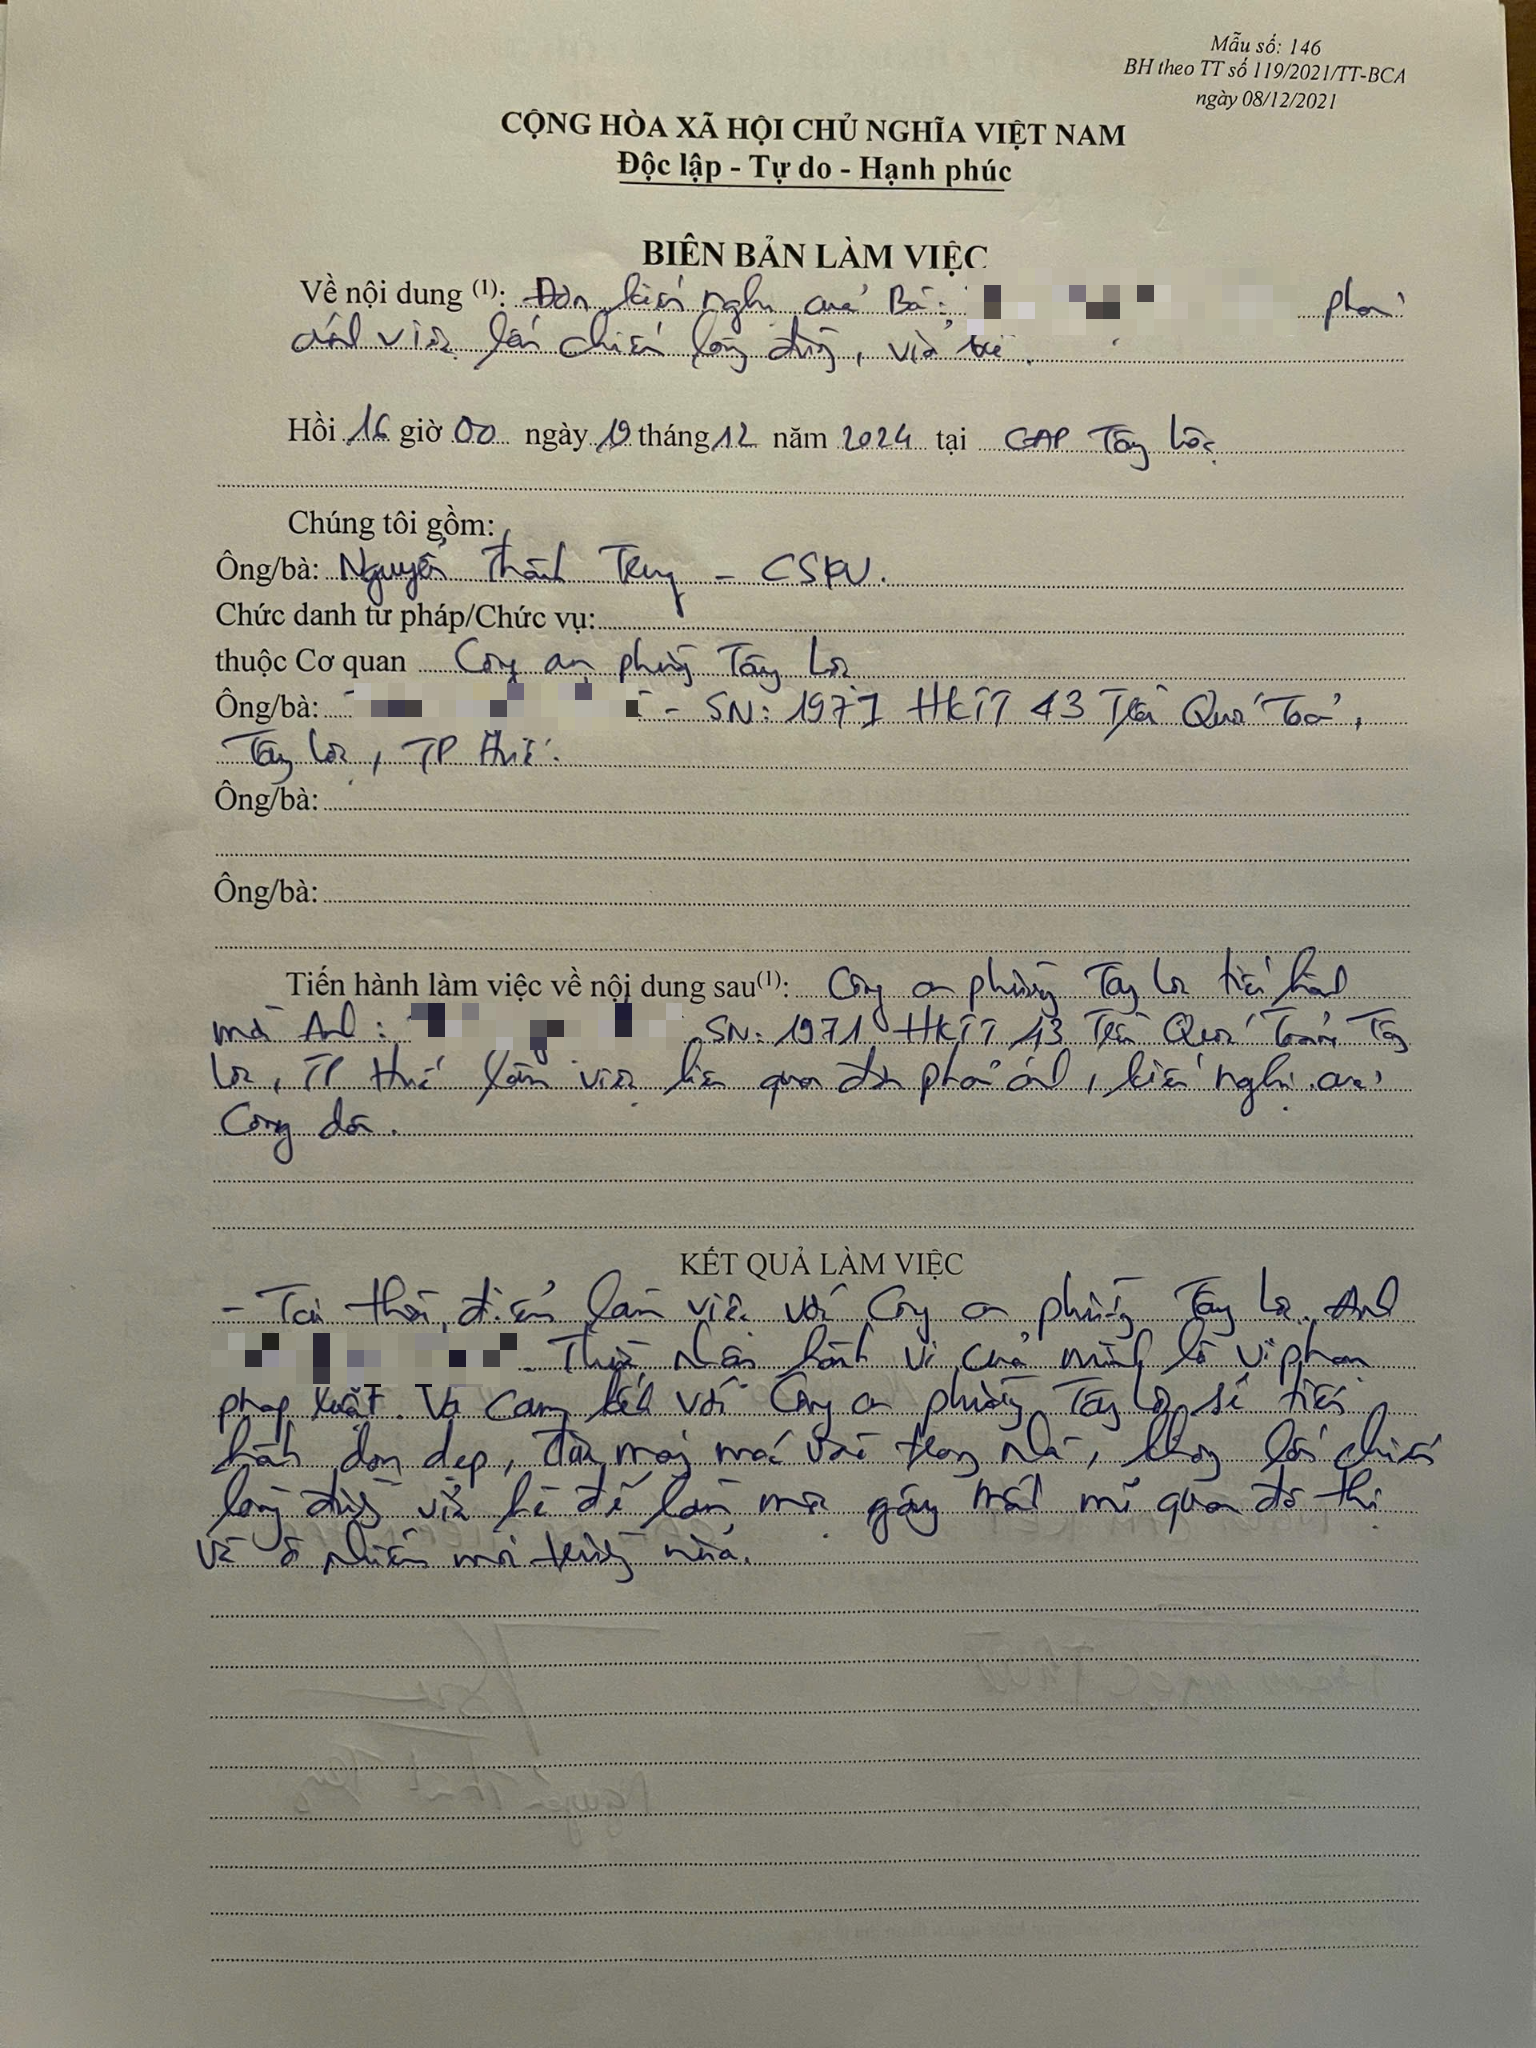 Mẫu số: 146
BH theo TT số 119/2021/TT-BCA
ngày 08/12/2021
CỘNG HÒA XÃ HỘI CHỦ NGHĨA VIỆT NAM
Độc lập - Tự do - Hạnh phúc
BIÊN BẢN LÀM VIỆC
Về nội dung (1): Đơn kiến nghị của Bà: phản
ánh việc lấn chiếm lòng đường, vỉa hè.
Hồi 16 giờ 00 ngày 19 tháng 12 năm 2024 tại CAP Tây Lộc
Chúng tôi gồm:
Ông/bà: Nguyễn Thành Trung - CSKV.
Chức danh tư pháp/Chức vụ:
thuộc Cơ quan Công an phường Tây Lộc
Ông/bà: - SN: 1971 HKTT 43 Trần Quốc Toản,
Tây Lộc, TP Huế.
Ông/bà:
Ông/bà:
Tiến hành làm việc về nội dung sau(1): Công an phường Tây Lộc tiến hành
mời Anh: SN: 1971 HKTT 43 Trần Quốc Toản, Tây
Lộc, TP Huế làm việc liên quan đơn phản ánh, kiến nghị của
Công dân.
KẾT QUẢ LÀM VIỆC
- Tại thời điểm làm việc với Công an phường Tây Lộc. Anh
Thừa nhận hành vi của mình là vi phạm
pháp luật. Và cam kết với Công an phường Tây Lộc sẽ tiến
hành dọn dẹp, máy móc vào trong nhà, không lấn chiếm
lòng đường vỉa hè để làm gây mất mĩ quan đô thị
và ô nhiễm môi trường nữa.